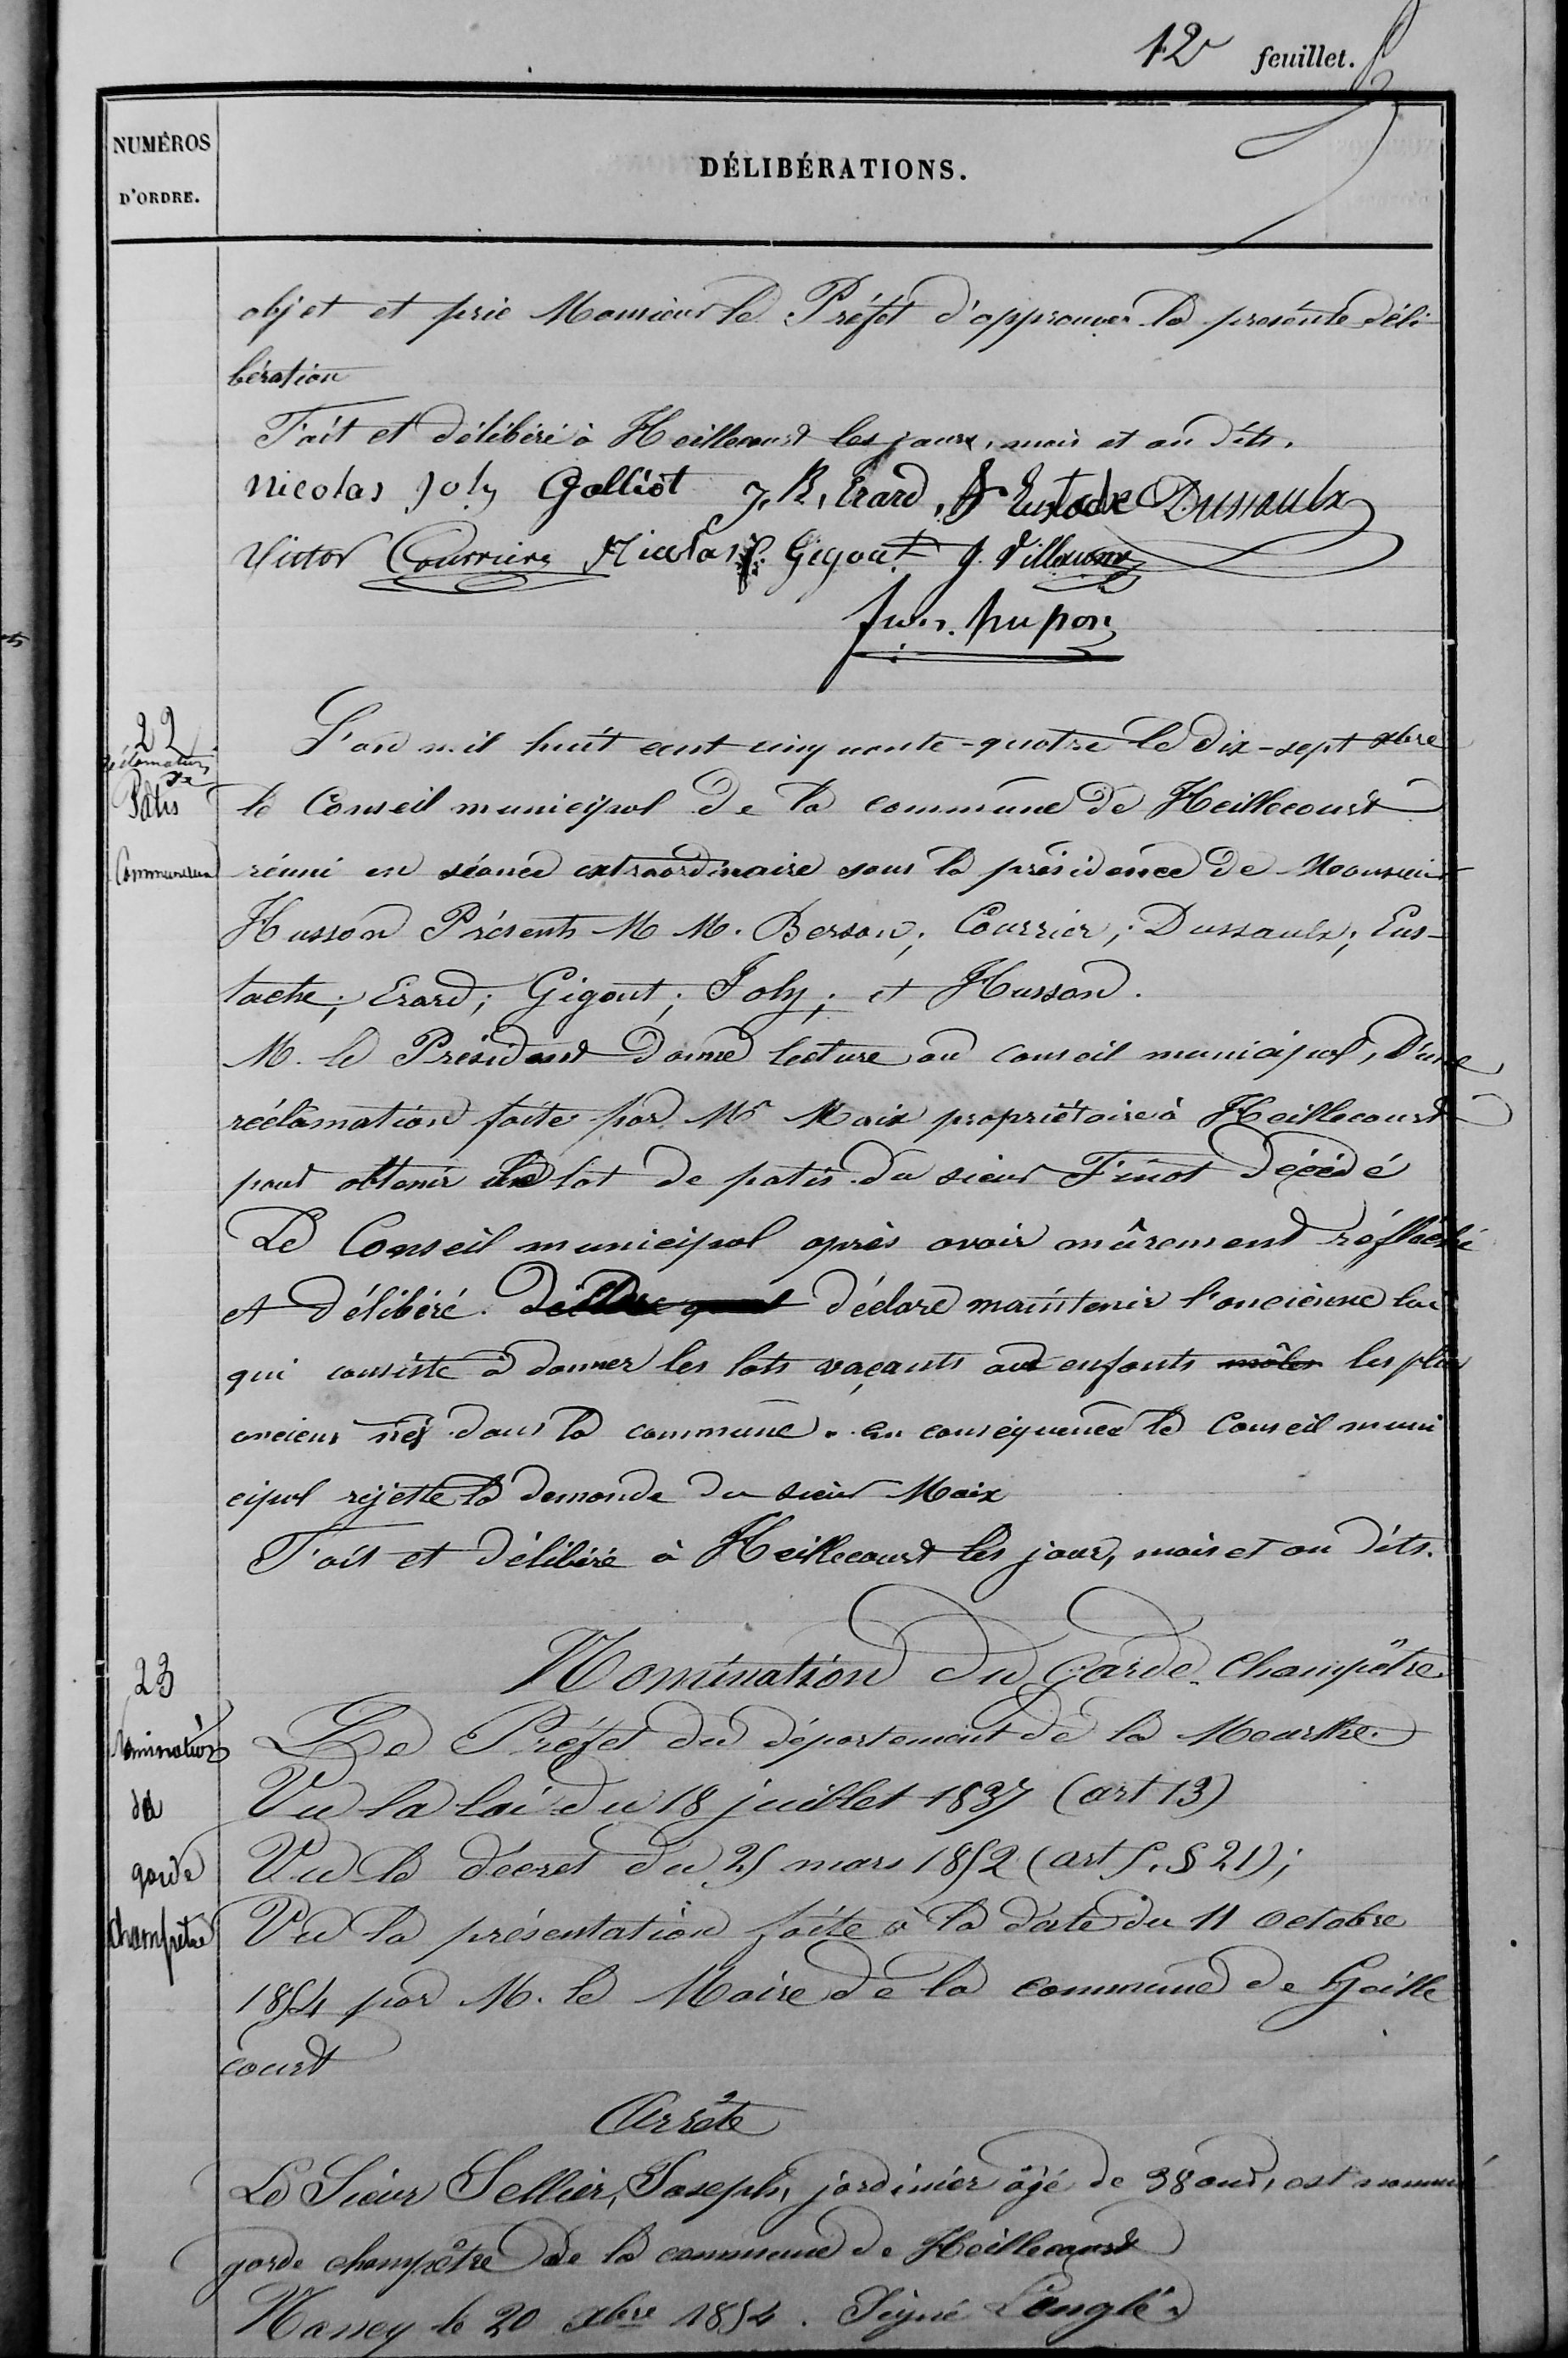 12e feuillet.
NUMÉROS
D'ORDRE.
DÉLIBÉRATIONS.
objet et prie Monsieur le Préfet d'approuver la présente déli-
bération
Fait et délibéré à Heillecourt les jours, mois et an dits.
Nicolas Joly Galliot J. B. Erard, Eustache Dussaulx
Victor Courrier Nicolas Gigout J. Villaume
22
Réclamation
de
Patis
Communaux
L'an mil huit cent cinquante-quatre le dix-sept xbre
le Conseil municipal de la commune de Heillecourt
réuni en séance extraordinaire sous la présidence de Monsieur
Husson Présents M M. Berson; Courrier; Dussaulx; Eus-
tache; Erard; Gigout; Joly; et Husson.
M. le Président donne lecture au conseil municipal, d'une
réclamation faite par Mr Maix propriétaire à Heillecourt
pour obtenir le lot de patis du sieur Finot décédé
Le Conseil municipal après avoir mûrement réfléchi
et délibéré. déclare maintenir l'ancienne loi
qui consiste à donner les lots vaçants aux enfants mâles les plus
anciens nés dans la commune. en conséquence le Conseil muni
cipal rejette la demande du sieur Maix
Fait et délibéré à Heillecourt les jour, mois et an dits.
23
Nomination
du
garde
champêtre
Nomination du Garde-Champêtre
Le Préfet du département de la Meurthe.
Vu la loi du 18 juillet 1837 (art 13)
Vu le décret du 25 mars 1852 (art 5. § 21);
Vu la présentation faite à la date du 11 octobre
1854 par M. le Maire de la commune de Heille
court
Arrête
Le Sieur Sellier, Joseph, jardinier âgé de 38 ans, est nommé
garde champêtre de la commune de Heillecourt
Nancy le 20 xbre 1854. Signé Lenglé